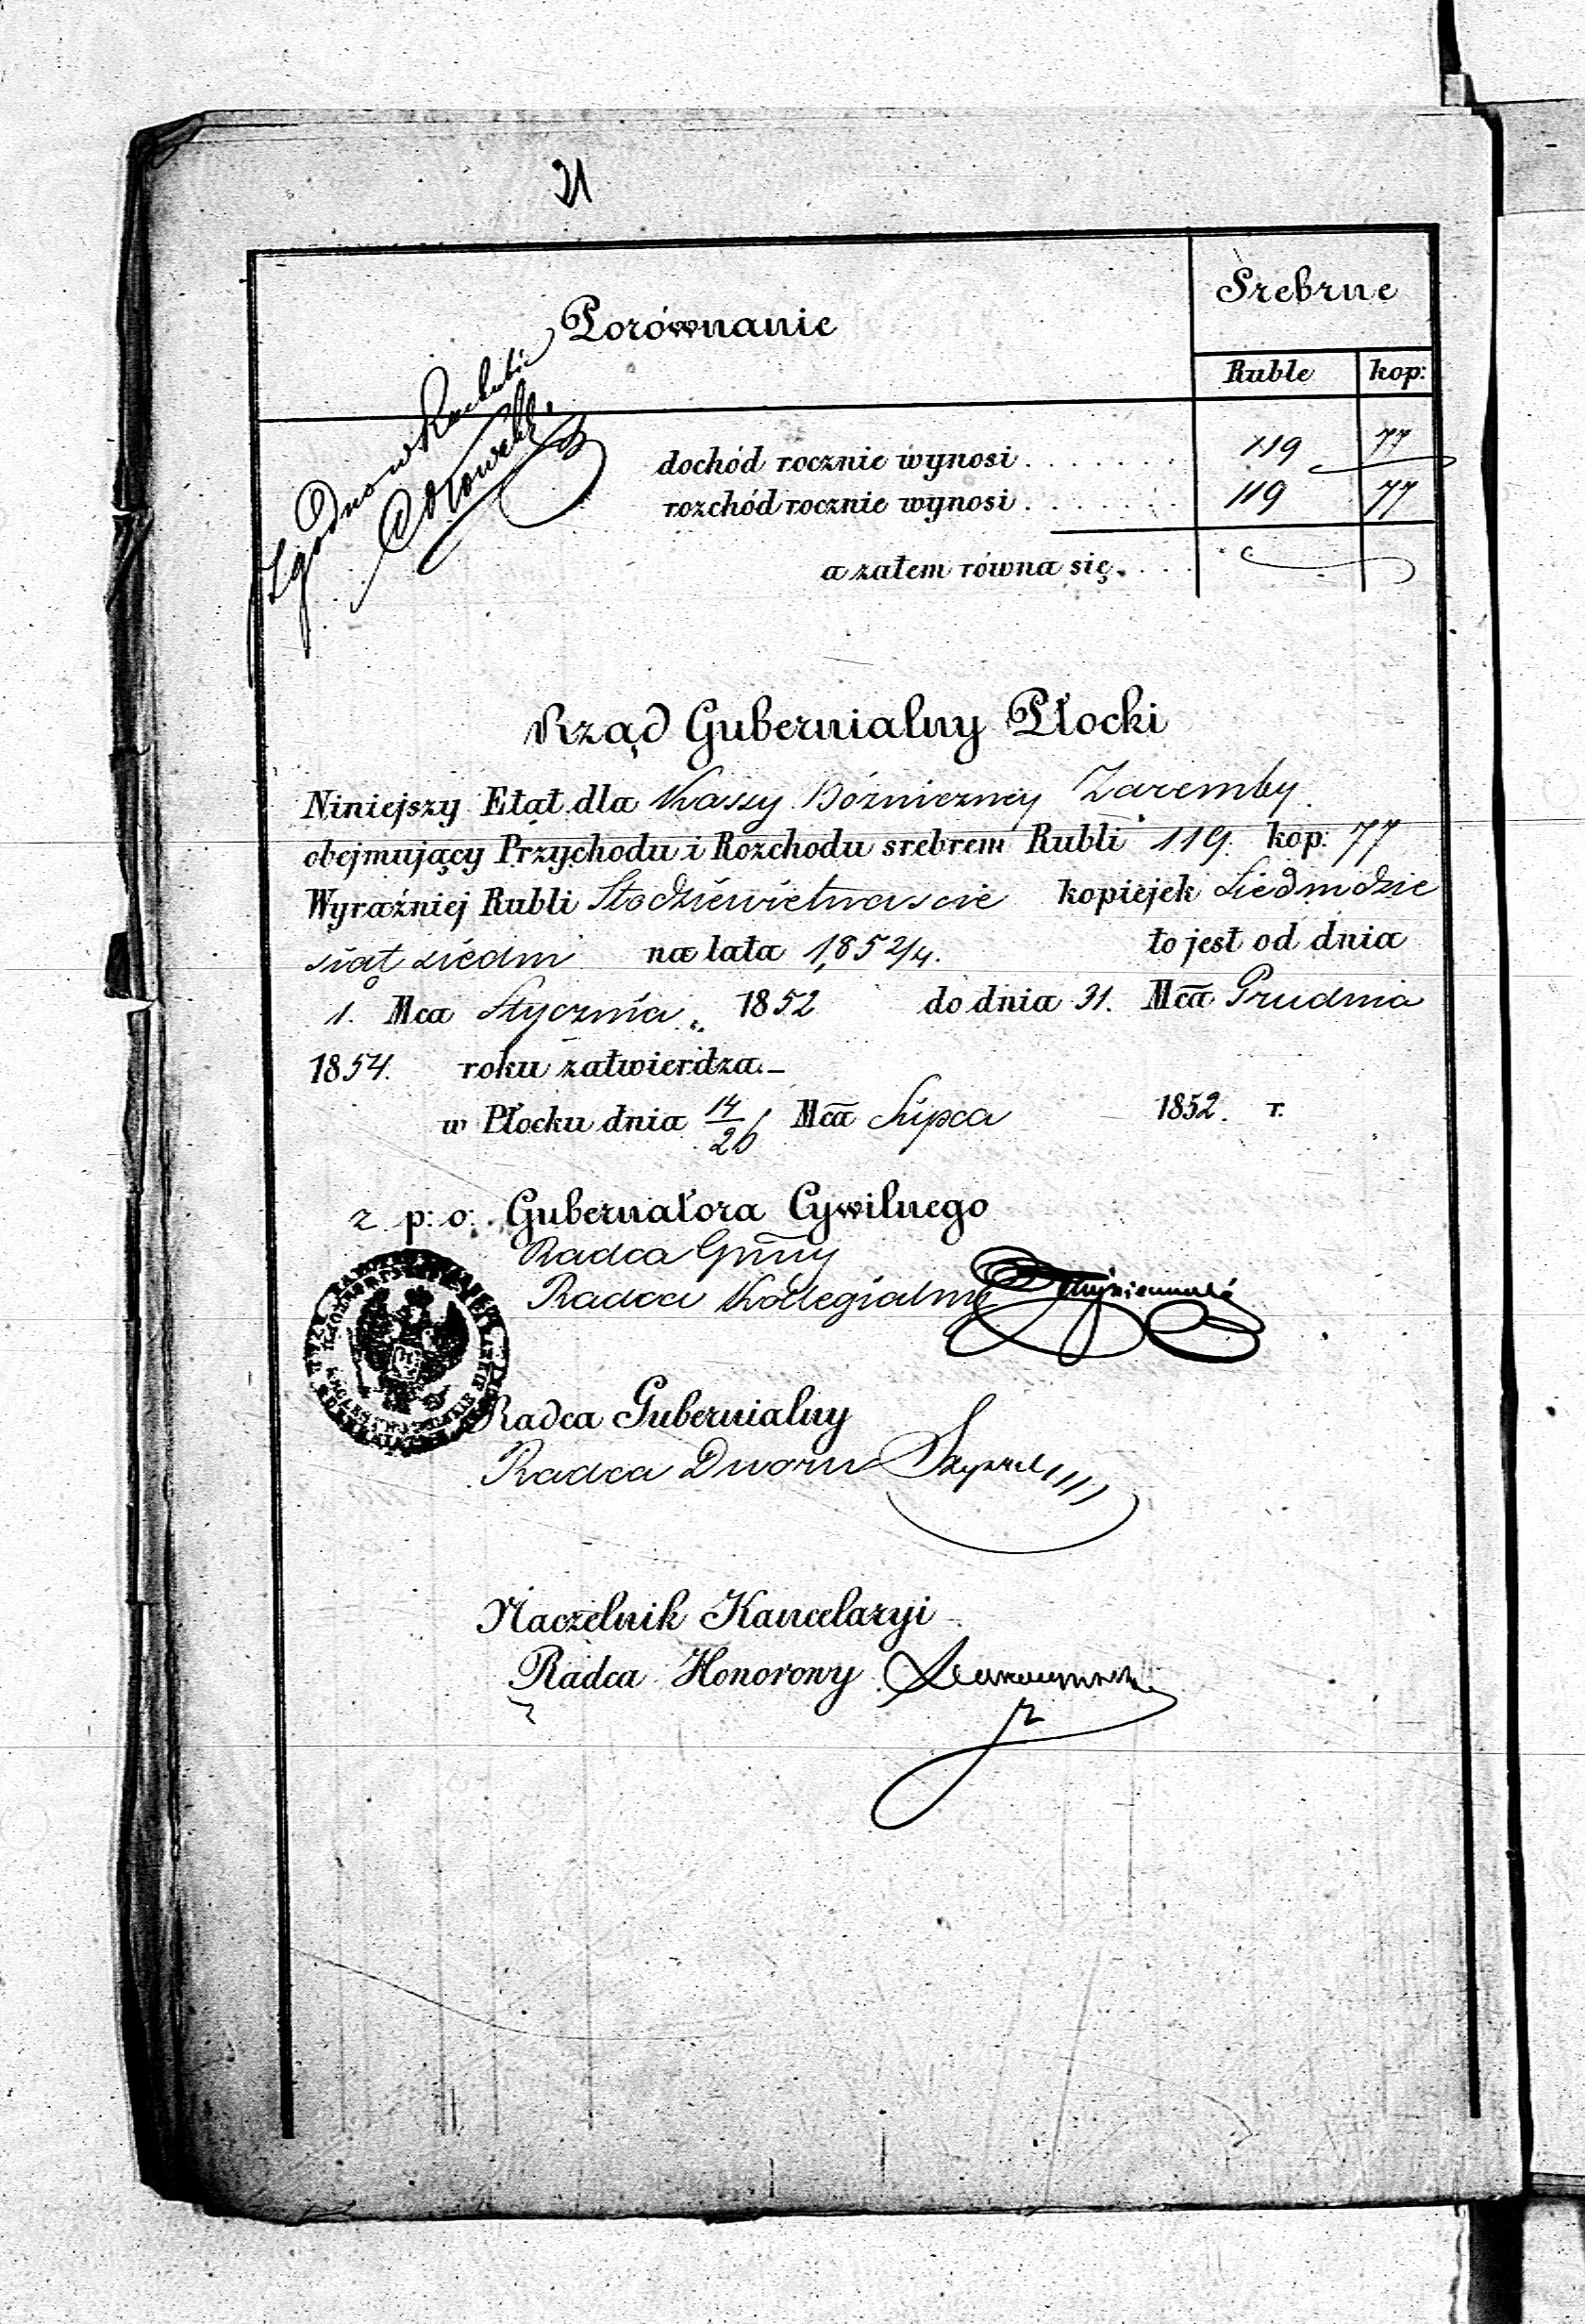 21
Porównanie
Srebrne
Ruble kop:
Zgodno w Rachubie
dochód rocznie wynosi . . . . . . . 119 77
rozchód rocznie wynosi . . . . . . . 119 77
a zatem równa się. . . .
Rząd Gubernialny Płocki
Niniejszy Etat dla Kassy Bóżniczney Zaremby
obejmujący Przychodu i Rozchodu srebrem Rubli 119. kop: 77
Wyraźniej Rubli Stodziewietnascie kopiejek Siedmdzie
siąt siedm na lata 1852/4. to jest od dnia
1. Mca Stycznia 1852 do dnia 31. Mca Grudnia
1854. roku zatwierdza.—
w Płocku dnia 14/26 Mca Lipca 1852. r.
z. p: o: Gubernatora Cywilnego
Radca Gubny
Radca Kollegialny
Radca Gubernialny
Radca Dworu
Naczelnik Kancelaryi
Radca Honorowy